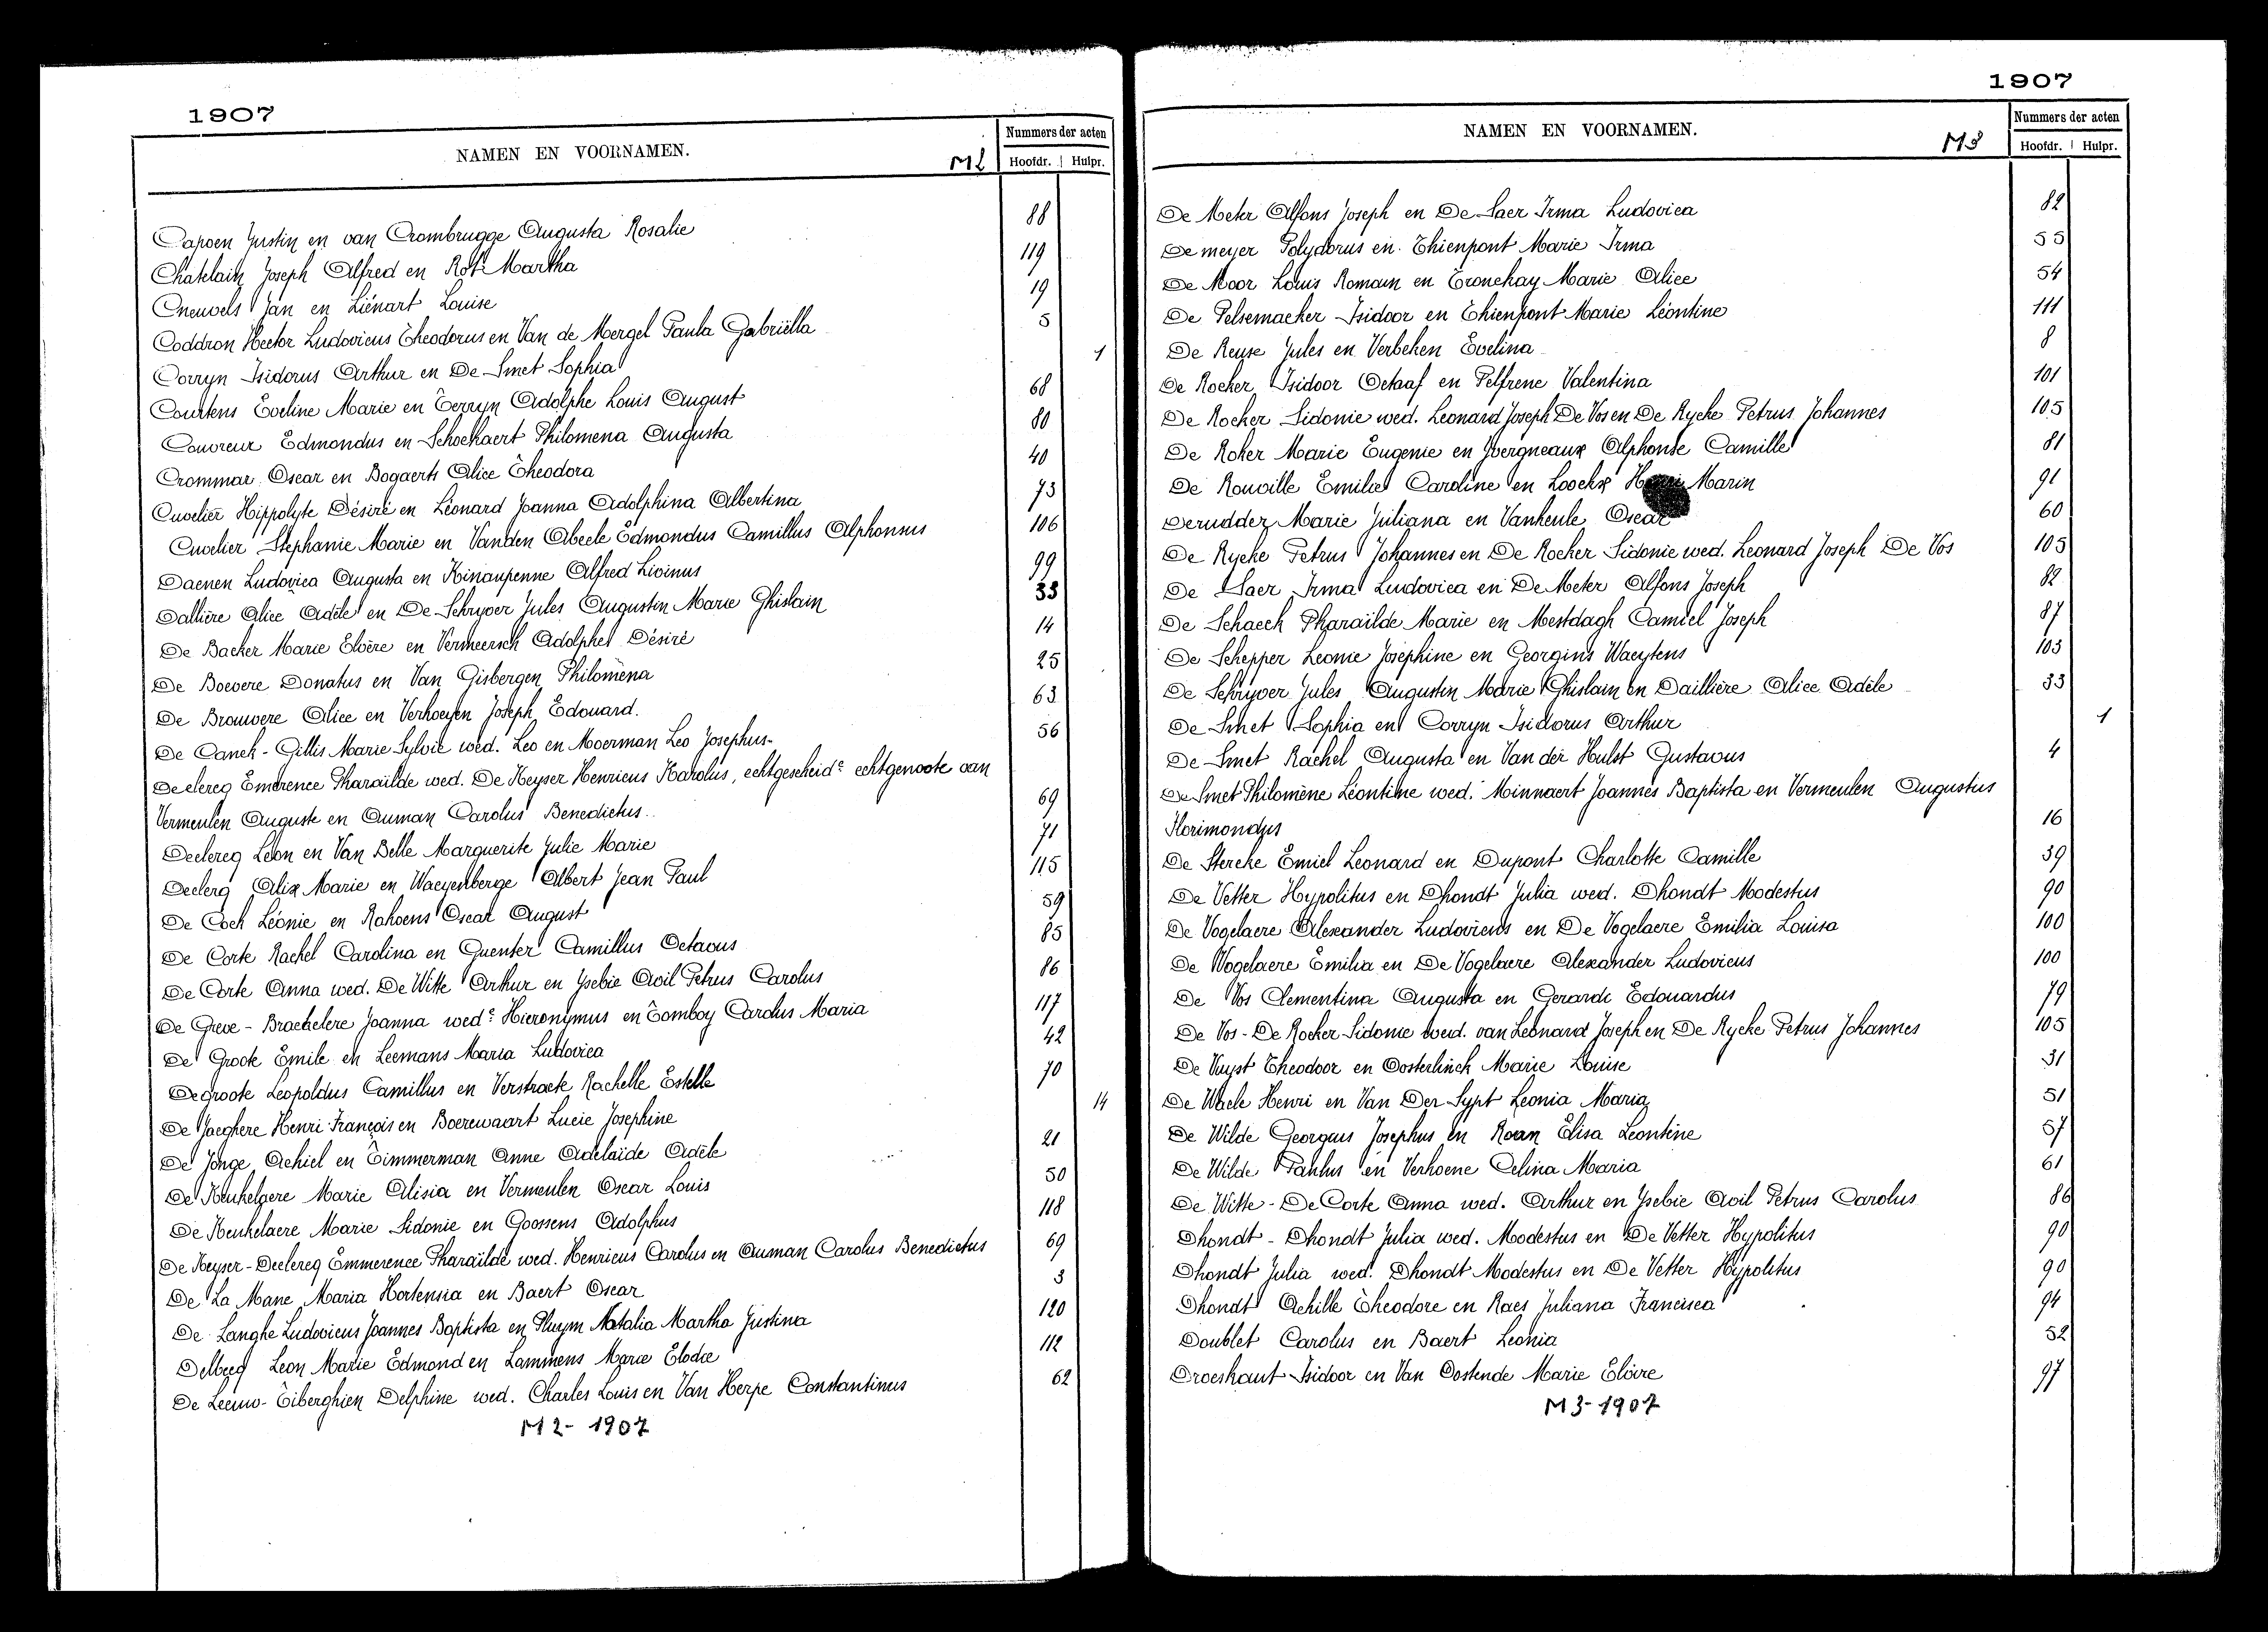 1907
NAMEN EN VOORNAMEN.
M2
Nummers der acten
Hoofdr. Hulpr.
Capoen Justin en van Crombrugge Augusta Rosalie 88
Chatelain Joseph Alfred en Rot Martha 119
Cneuvels Jan en Liénart Louise 19
Coddron Hector Ludovicus Theodorus en Van de Mergel Paula Gabriëlla 5
Corryn Isidorus Arthur en De Smet Sophia 1
Courtens Eveline Marie en Terryn Adolphe Louis August 68
Couvreur Edmondus en Schockaert Philomena Augusta 80
Crommar Oscar en Bogaerts Alice Theodora 40
Cuvelier Hippolyte Désiré en Léonard Joanna Adolphina Albertina 73
Cuvelier Stephanie Marie en Vanden Abeele Edmondus Camillus Alphonsus 106
Daenen Ludovica Augusta en Kinaupenne Alfred Livinus 99
Dallière Alice Adèle en De Schryver Jules Augustin Marie Ghislain 33
De Backer Marie Elvère en Vermeersch Adolphe Désiré 14
De Boevere Donatus en Van Gisbergen Philomèna 25
De Brouwere Alice en Verhoeyen Joseph Edouard. 63
De Canck-Gillis Marie Sylvie wed. Leo en Moerman Leo Josephus- 56
Declercq Emerence Pharaïlde wed. De Keyser Henricus Karolus, echtgescheidᵉ echtgenoote van
Vermeulen Auguste en Auman Carolus Benedictus. 69
Declercq Leon en Van Belle Marguerite Julie Marie 71
Declerq Alix Marie en Waeyenberge Albert Jean Paul 115
De Cock Léonie en Rahoens Oscar August 59
De Corte Rachel Carolina en Quenter Camillus Octavus 85
De Corte Anna wed. De Witte Arthur en Ysebie Avil Petrus Carolus 86
De Greve-Braekelere Joanna wedᵉ Hieronymus en Tomboy Carolus Maria 117
De Groote Emile en Leemans Maria Ludovica 42
Degroote Leopoldus Camillus en Verstraete Rachelle Estelle 70
De Jaeghere Henri François en Boerewaart Lucie Josephine 14
De Jonge Achiel en Timmerman Anne Adelaïde Adèle 21
De Keukelaere Marie Alisia en Vermeulen Oscar Louis 50
De Keukelaere Marie Sidonie en Goossens Adolphus 118
De Keyser-Declercq Emmerence Pharaïlde wed. Henricus Carolus en Auman Carolus Benedictus 69
De La Mane Maria Hortensia en Baert Oscar 3
De Langhe Ludovicus Joannes Baptista en Pluym Natalia Martha Justina 120
Delbecq Leon Marie Edmond en Lammens Marie Elodie 112
De Leeuw-Tiberghien Delphine wed. Charles Louis en Van Herpe Constantinus 62
M2-1907
1907
NAMEN EN VOORNAMEN.
M3
Nummers der acten
Hoofdr. Hulpr.
De Meter Alfons Joseph en De Saer Irma Ludovica 82
De meyer Polydorus en Thienpont Marie Irma 55
De Moor Louis Romain en Tronckay Marie Alice 54
De Pelsemaeker Isidoor en Thienpont Marie Léontine 111
De Reuse Jules en Verbeken Evelina 8
De Rocker Isidoor Octaaf en Pelfrene Valentina 101
De Rocker Sidonie wed. Leonard Joseph De Vos en De Rycke Petrus Johannes 105
De Roker Marie Eugenie en Yvergneaux Alphonse Camille 81
De Rouville Emilie Caroline en Loockx Henri Marin 91
Derudder Marie Juliana en Vanheule Oscar 60
De Rycke Petrus Johannes en De Rocker Sidonie wed. Leonard Joseph De Vos 105
De Saer Irma Ludovica en De Meter Alfons Joseph 82
De Schaeck Pharaïlde Marie en Mestdagh Camiel Joseph 87
De Schepper Leonie Josephine en Georgins Waeytens 103
De Schryver Jules Augustin Marie Ghislain en Daillière Alice Adèle 33
De Smet Sophia en Corryn Isidorus Arthur 1
De Smet Rachel Augusta en Van der Hulst Gustavus 4
De Smet Philomène Léontine wed. Minnaert Joannes Baptista en Vermeulen Augustus
Florimondus 16
De Stercke Emiel Leonard en Dupont Charlotte Camille 39
De Vetter Hypolitus en Dhondt Julia wed. Dhondt Modestus 90
De Vogelaere Alexander Ludovicus en De Vogelaere Emilia Louisa 100
De Vogelaere Emilia en De Vogelaere Alexander Ludovicus 100
De Vos Clementina Augusta en Gerardi Edouardus 79
De Vos-De Rocker Sidonie wed. van Leonard Joseph en De Rycke Petrus Johannes 105
De Vuyst Theodoor en Oosterlinck Marie Louise 31
De Waele Henri en Van Der Sypt Leonia Maria 51
De Wilde Georgus Josephus en Roan Elisa Leontine 57
De Wilde Paulus en Verhoene Celina Maria 61
De Witte-De Corte Anna wed. Arthur en Ysebie Avil Petrus Carolus 86
Dhondt-Dhondt Julia wed. Modestus en De Vetter Hypolitus 90
Dhondt Julia wed. Dhondt Modestus en De Vetter Hypolitus 90
Dhondt Achille Theodore en Raes Juliana Francisca 94
Doublet Carolus en Baert Leonia 52
Droeshaut Isidoor en Van Oostende Marie Elvire 97
M3-1907